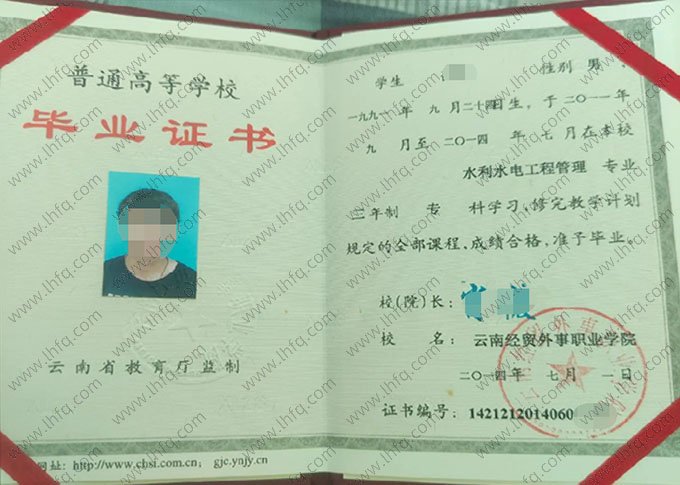 普通高等学校
毕业证书
云南省教育厅监制
网址: http://www.chsi.com.cn; gjc.ynjy.cn
学生 性别 男
一九九一年 九 月二十四日生, 于二〇一一年
九 月至二〇一四 年 七 月在本校
水利水电工程管理 专业
三年制 专 科学习, 修完教学计划
规定的全部课程, 成绩合格, 准予毕业。
校(院)长:
校 名: 云南经贸外事职业学院
二〇一四年 七月 一日
证书编号: 1421212014060
www.lhfq.com